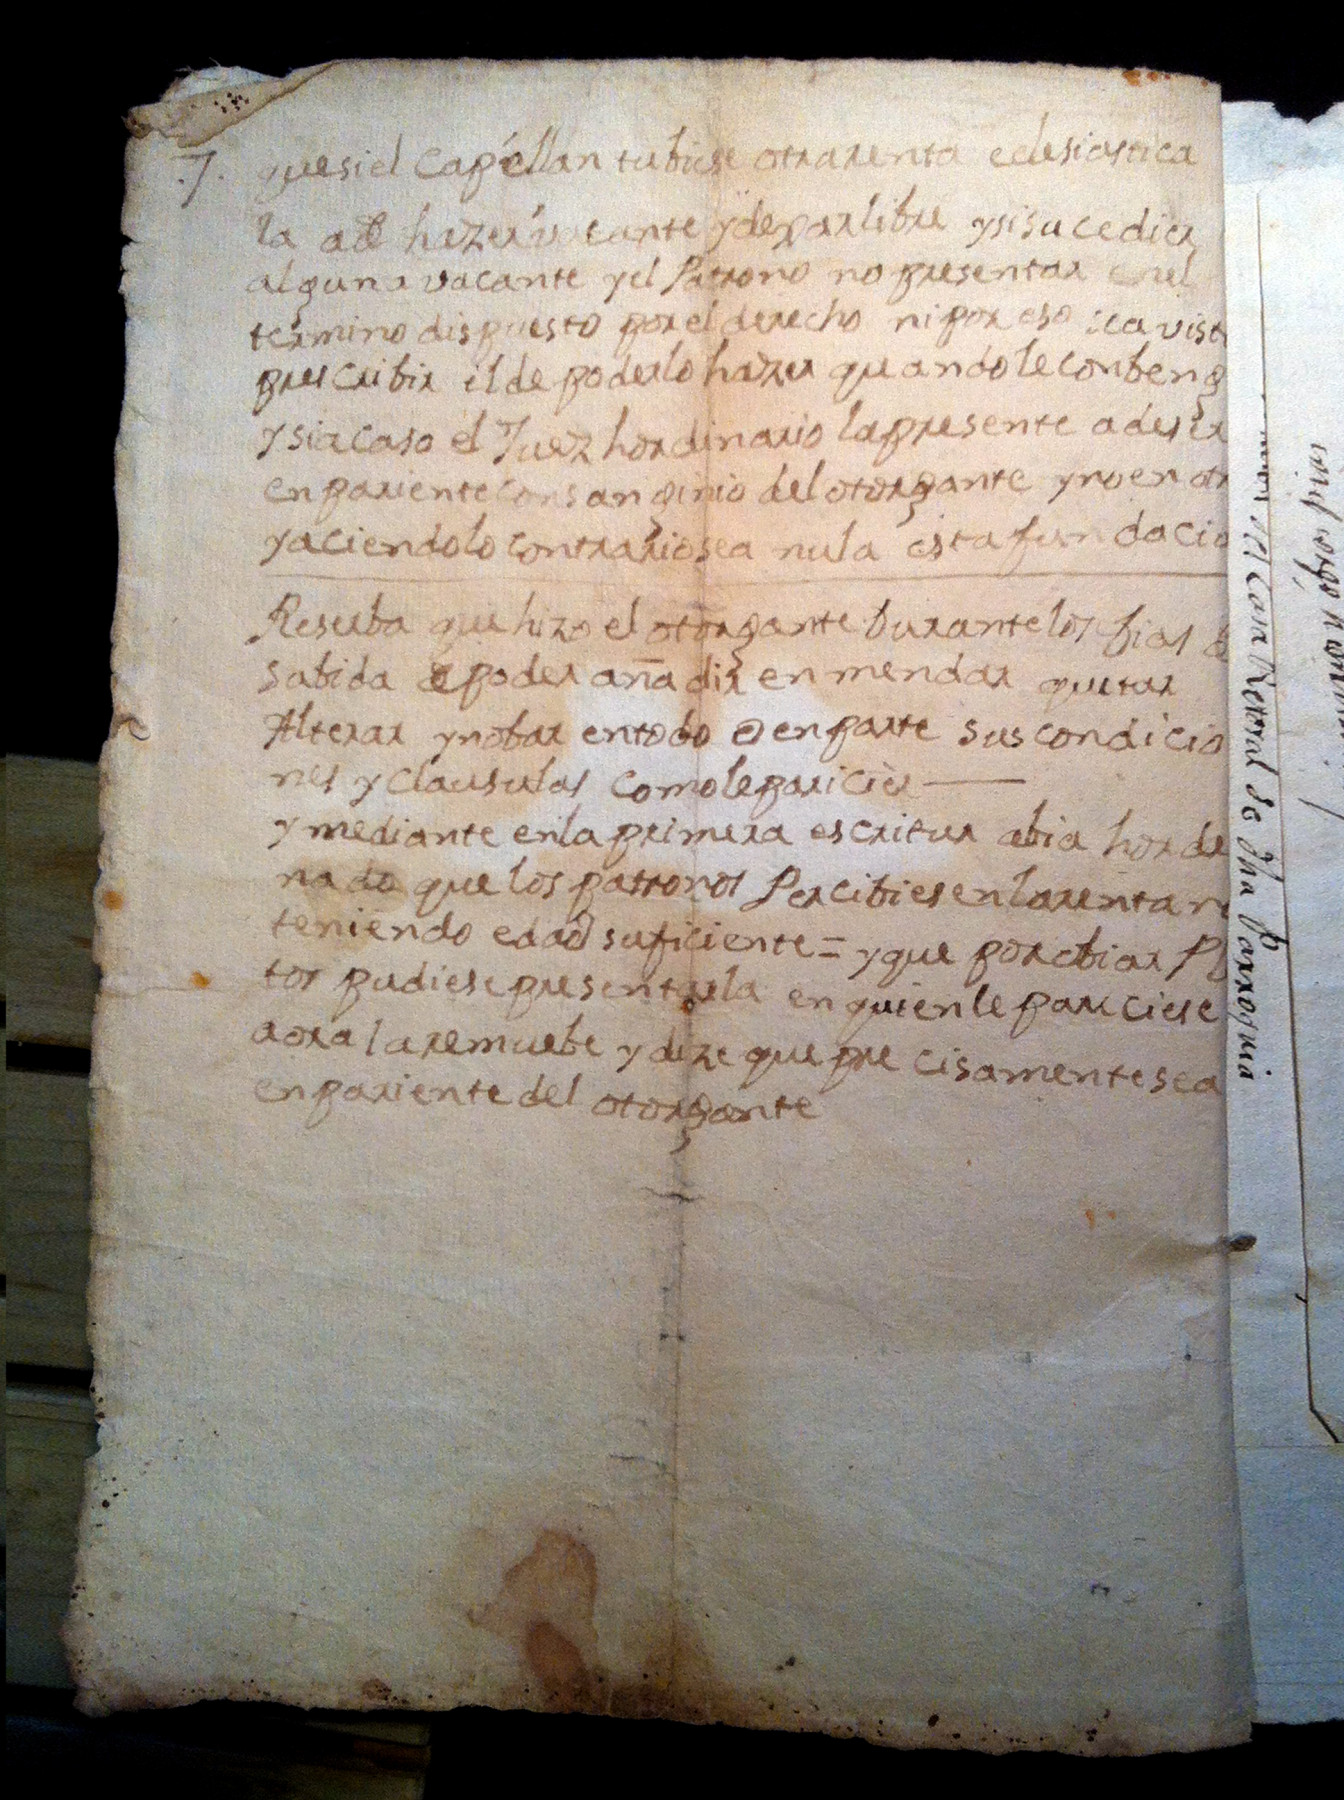 .7. que si el Capellan tubiese otra renta eclesiastica
la a de hazer vacante y dexar libre y si sucedier
alguna vacante y el Patrono no presentar en el
termino dispuesto por el derecho ni por eso sea vist
prescribir el de poderlo hazer quando le conbeng
y si acaso el Juez hordinario la presente a de ser
en pariente consanginio del otorgante y no en otr
y aciendo lo contrario sea nula esta fundacio
Reserba que hizo el otorgante Durante los dias de
su bida de poder añadir enmendar quitar
Alterar ynobar en todo o en parte sus condicio
nes y clausulas como le paricier
y mediante en la primera escritur abia horde
nado que los patronos Percibiesen la renta no
teniendo edad suficiente = y que por obiar Pley
tos pudiese presentarla en quien le pareciese
aora la remuebe y dize que precisamente sea
en pariente del otorgante
Casa Retoral de dha Parroquia